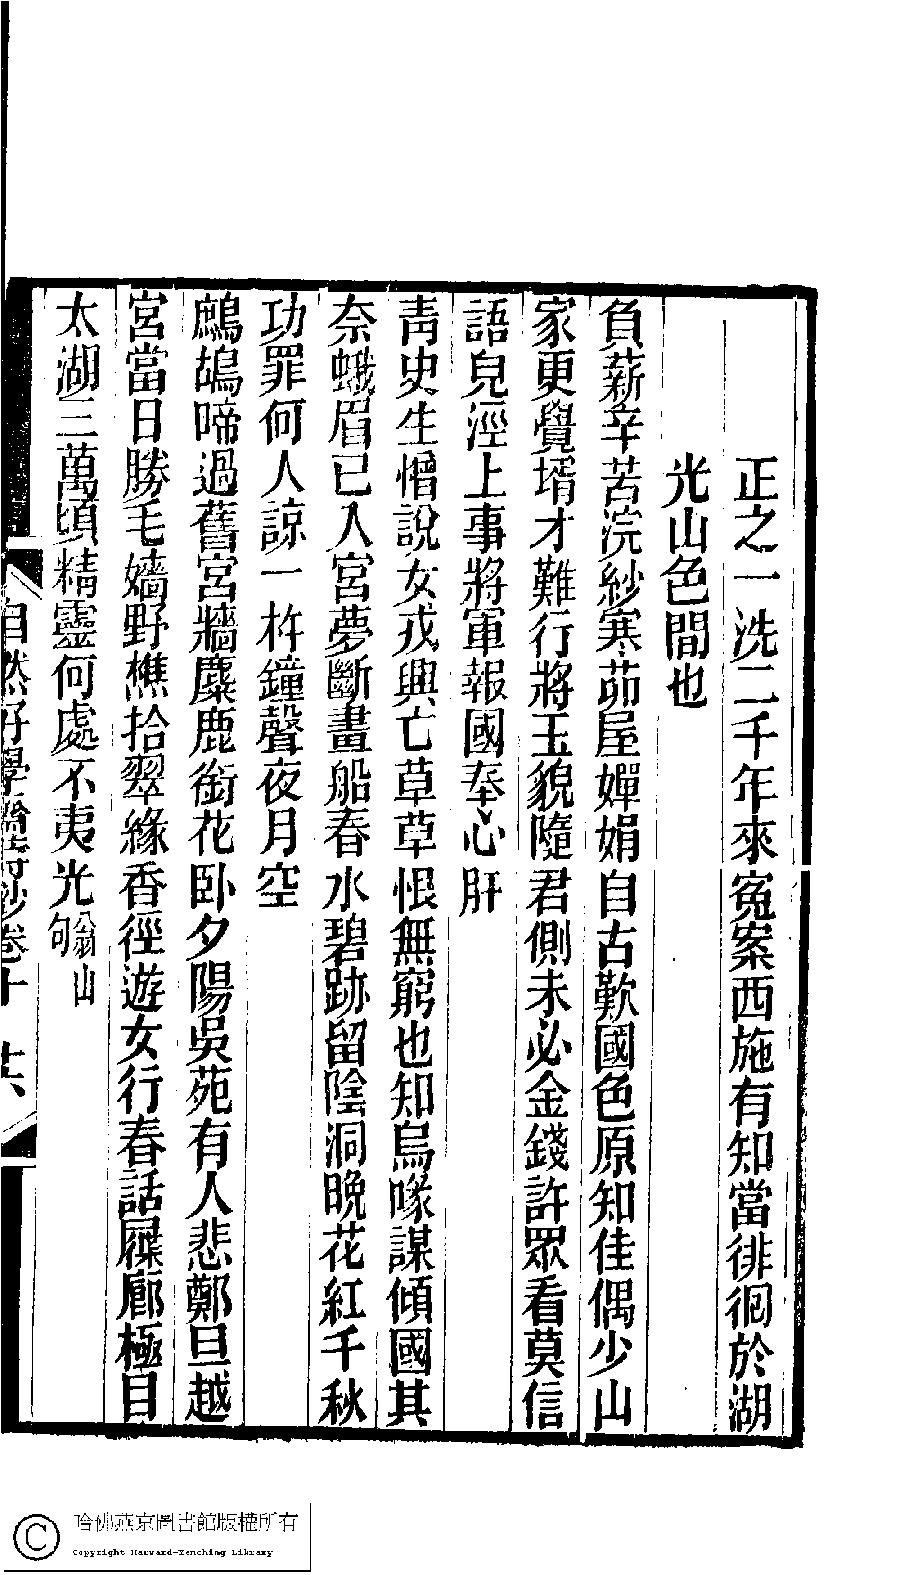 正之一洗二千年來寃案西施有知當徘徊於湖
光山色間也
負薪辛苦浣紗寒茆屋嬋娟自古歎國色原知佳偶少山
家更覺壻才難行將玉貌隨君側未必金錢許眾看莫信
語兒涇上事將軍報國奉心肝
青史生憎說女戎興亡草草恨無窮也知烏喙謀傾國其
奈蛾眉已入宮夢斷畫船春水碧跡留陰洞晚花紅千秋
功罪何人諒一杵鐘聲夜月空
鷓鴣啼過舊宮牆麋鹿銜花臥夕陽吳苑有人悲鄭旦越
宮當日勝毛嬙野樵拾翠緣香徑遊女行春話屧廊極目
太湖三萬頃精靈何處不夷光翁山句
自然好學齋詩鈔卷十 六
哈佛燕京圖書館版權所有
Copyright Harvard-Yenching Library